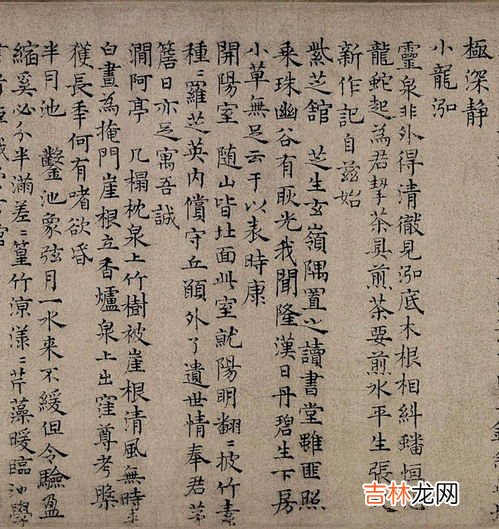 極深靜
小龍泓
靈泉非外得清徹見泓底木根相糾蟠恒
龍蛇起為君挈茶具煎茶要煎水平生張
新作記自茲始
紫芝館 芝生玄嶺隅置之讀書堂雖匪照
乘珠幽谷有耿光我聞隆漢日丹碧生下房
小草無足云于以表時康
開陽室 随山皆北面此室就陽明翻〻披竹素
種〻羅芝英内償守丘願外了遺世情奉君茅
簷日亦足寓吾誠
澗阿亭 几榻枕泉上竹樹被崖根清風無時來
白晝為掩門崖根立香爐泉上出窪尊考槃
獲長年何有嗜欲昏
半月池 鑿池象弦月一水来不緩但令驗盈
縮奚必分半滿差〻篁竹涼漾〻芹藻暖臨池學
吉林龙网